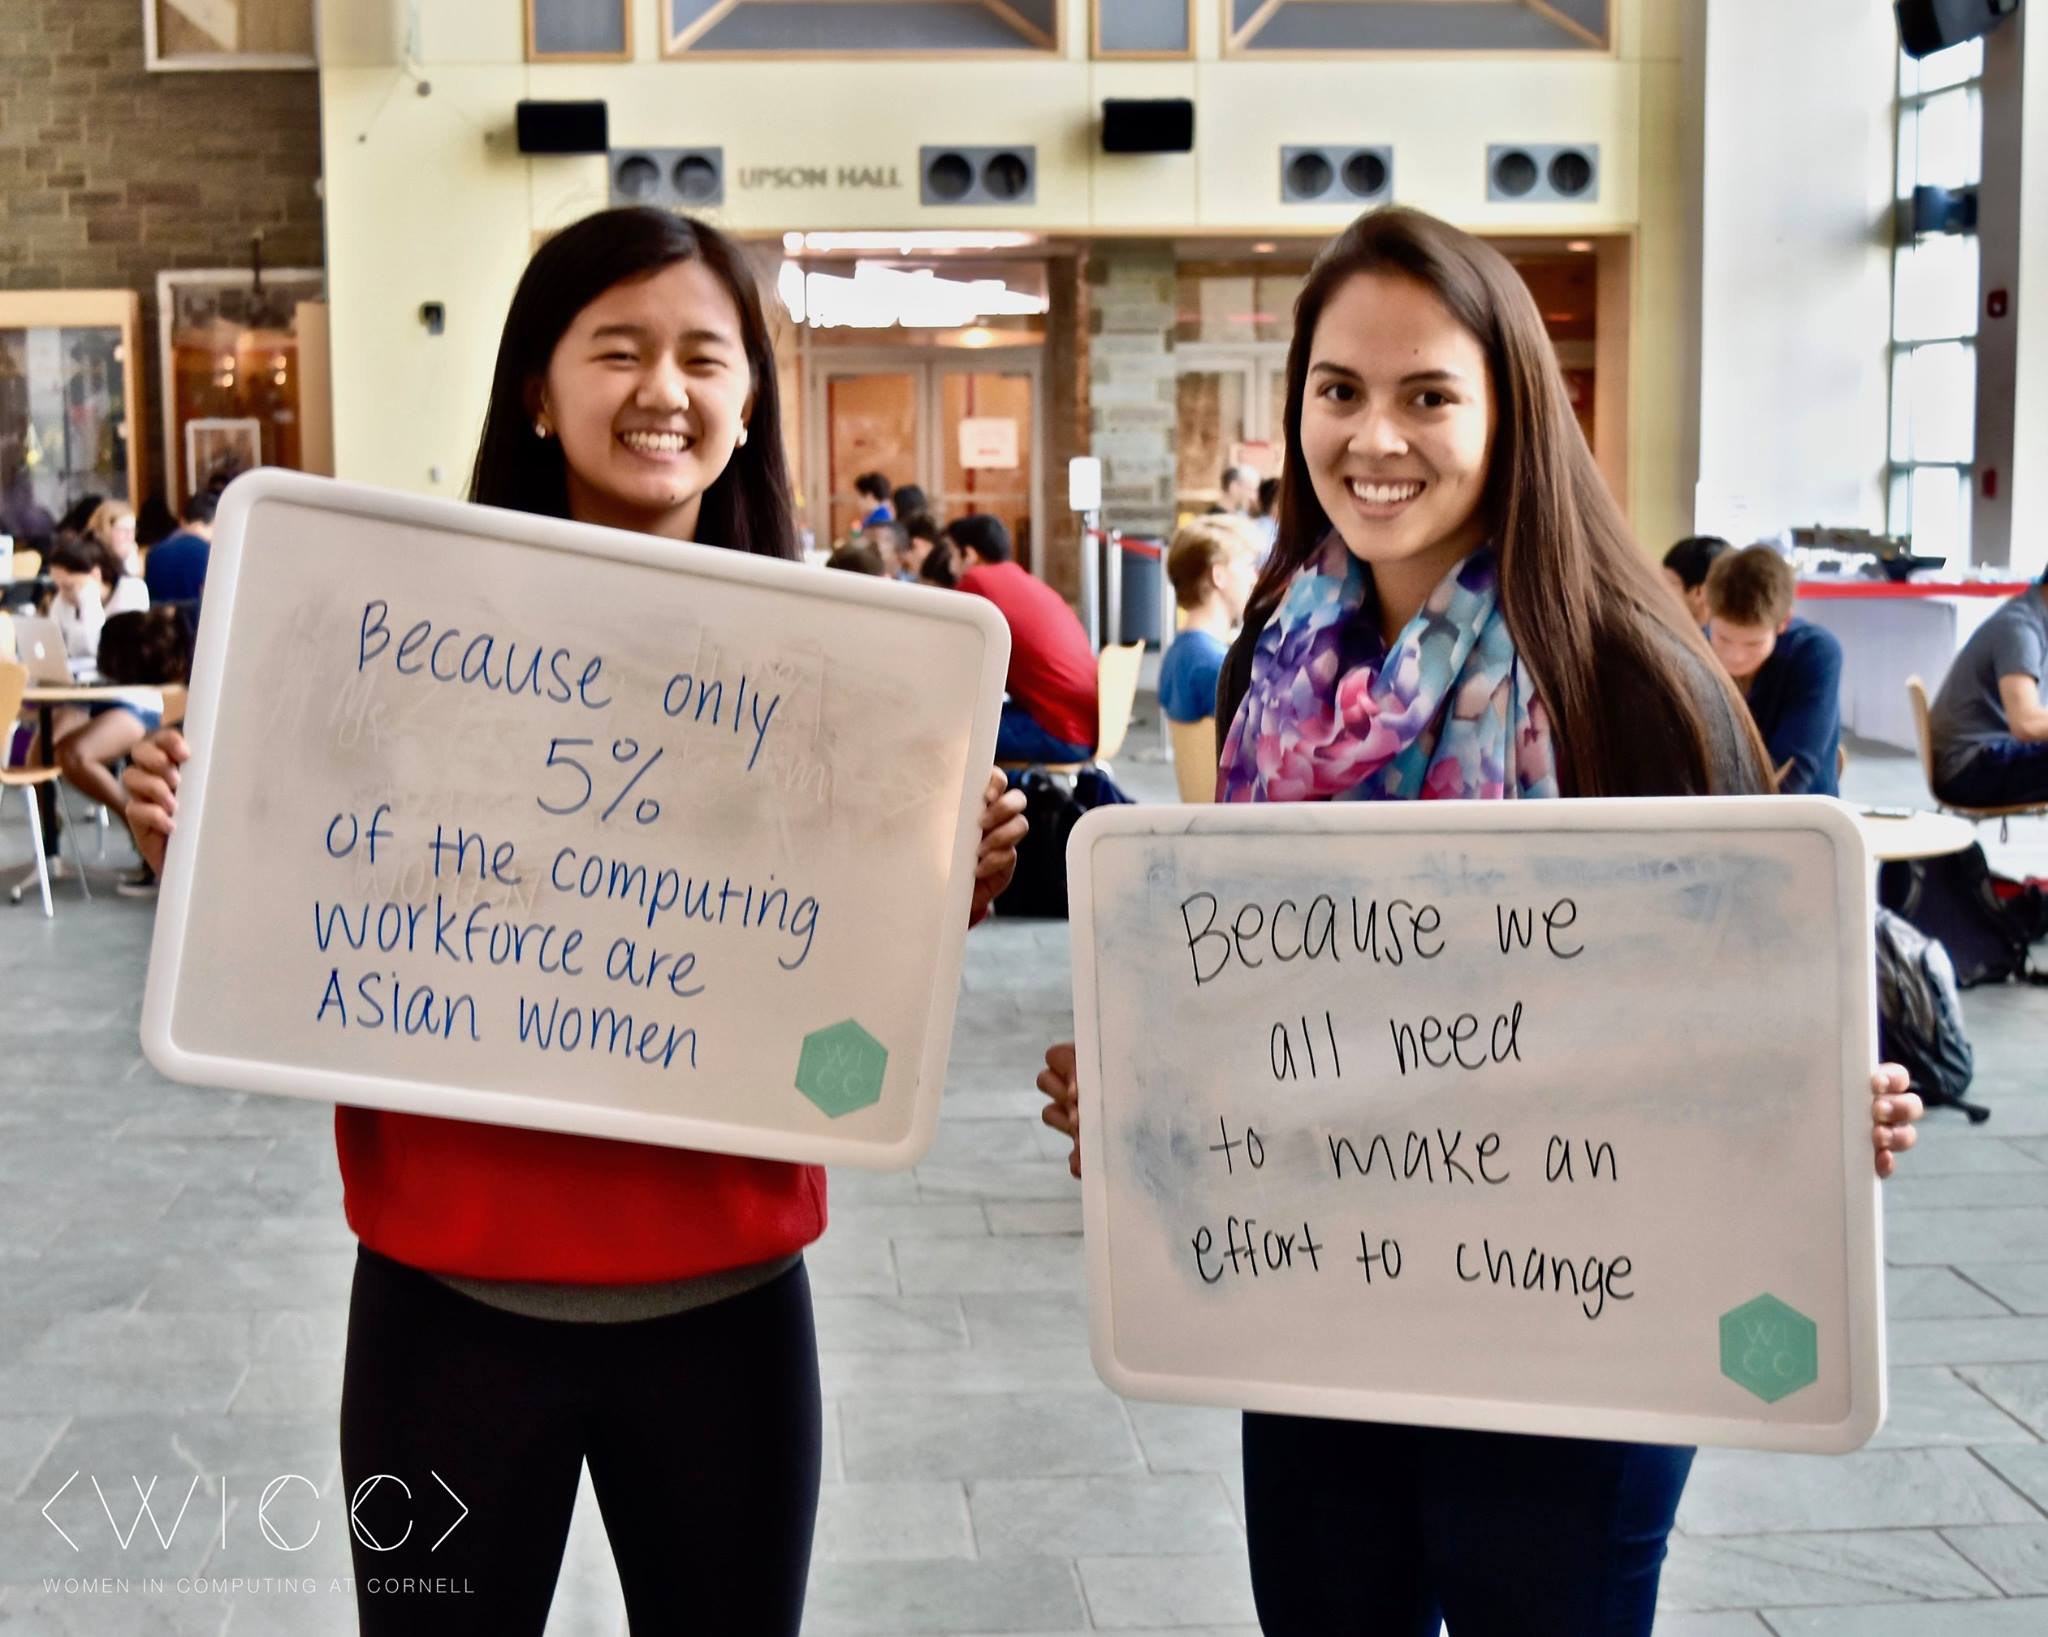 UPSON HALL
Because only
5%
of the computing
workforce are
Asian women
WI
CC
Because we
all need
to make an
effort to change
WI
CC
<WICC>
WOMEN IN COMPUTING AT CORNELL